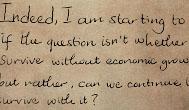 Indeed, I am starting to
if the question isn't whether
survive without economic grow
but rather, can we continue
survive with it?